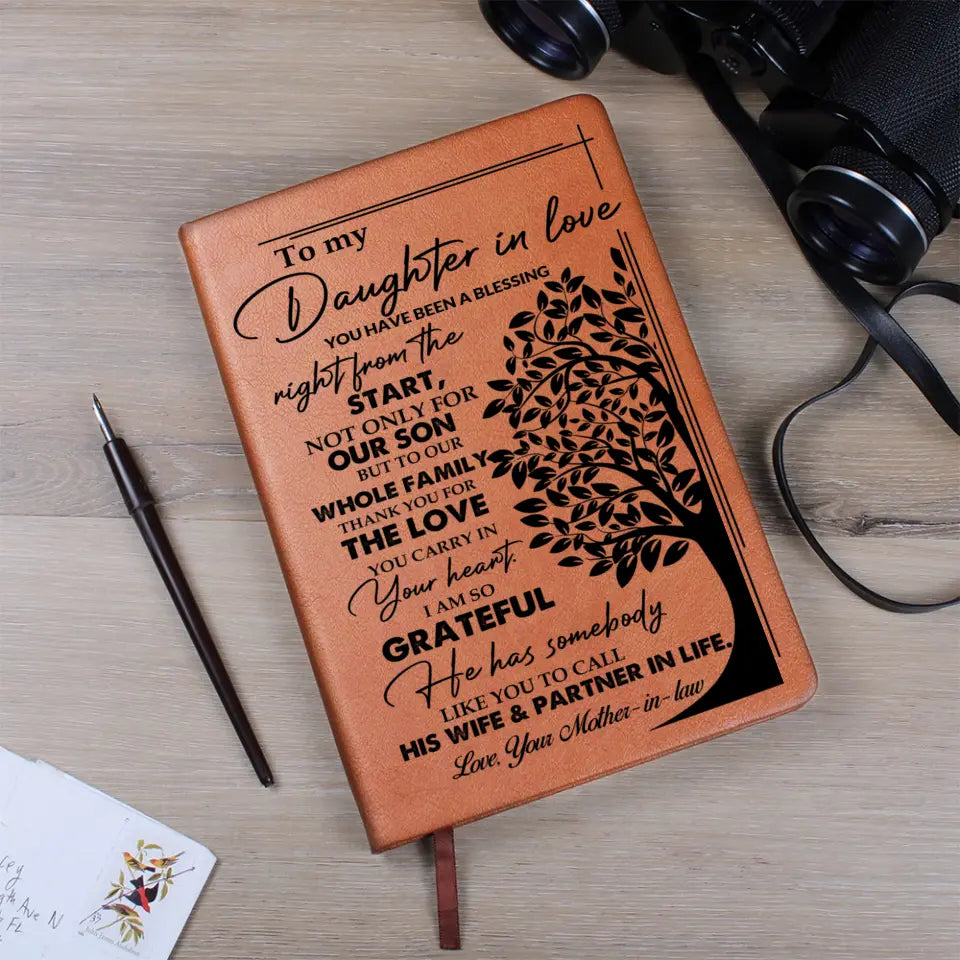 To my
Daughter in love
YOU HAVE BEEN A BLESSING
right from the
START,
NOT ONLY FOR
OUR SON
BUT TO OUR
WHOLE FAMILY
THANK YOU FOR
THE LOVE
YOU CARRY IN
Your heart.
I AM SO
GRATEFUL
He has somebody
LIKE YOU TO CALL
HIS WIFE & PARTNER IN LIFE.
Love, Your Mother-in-law
Ave N
FL
37